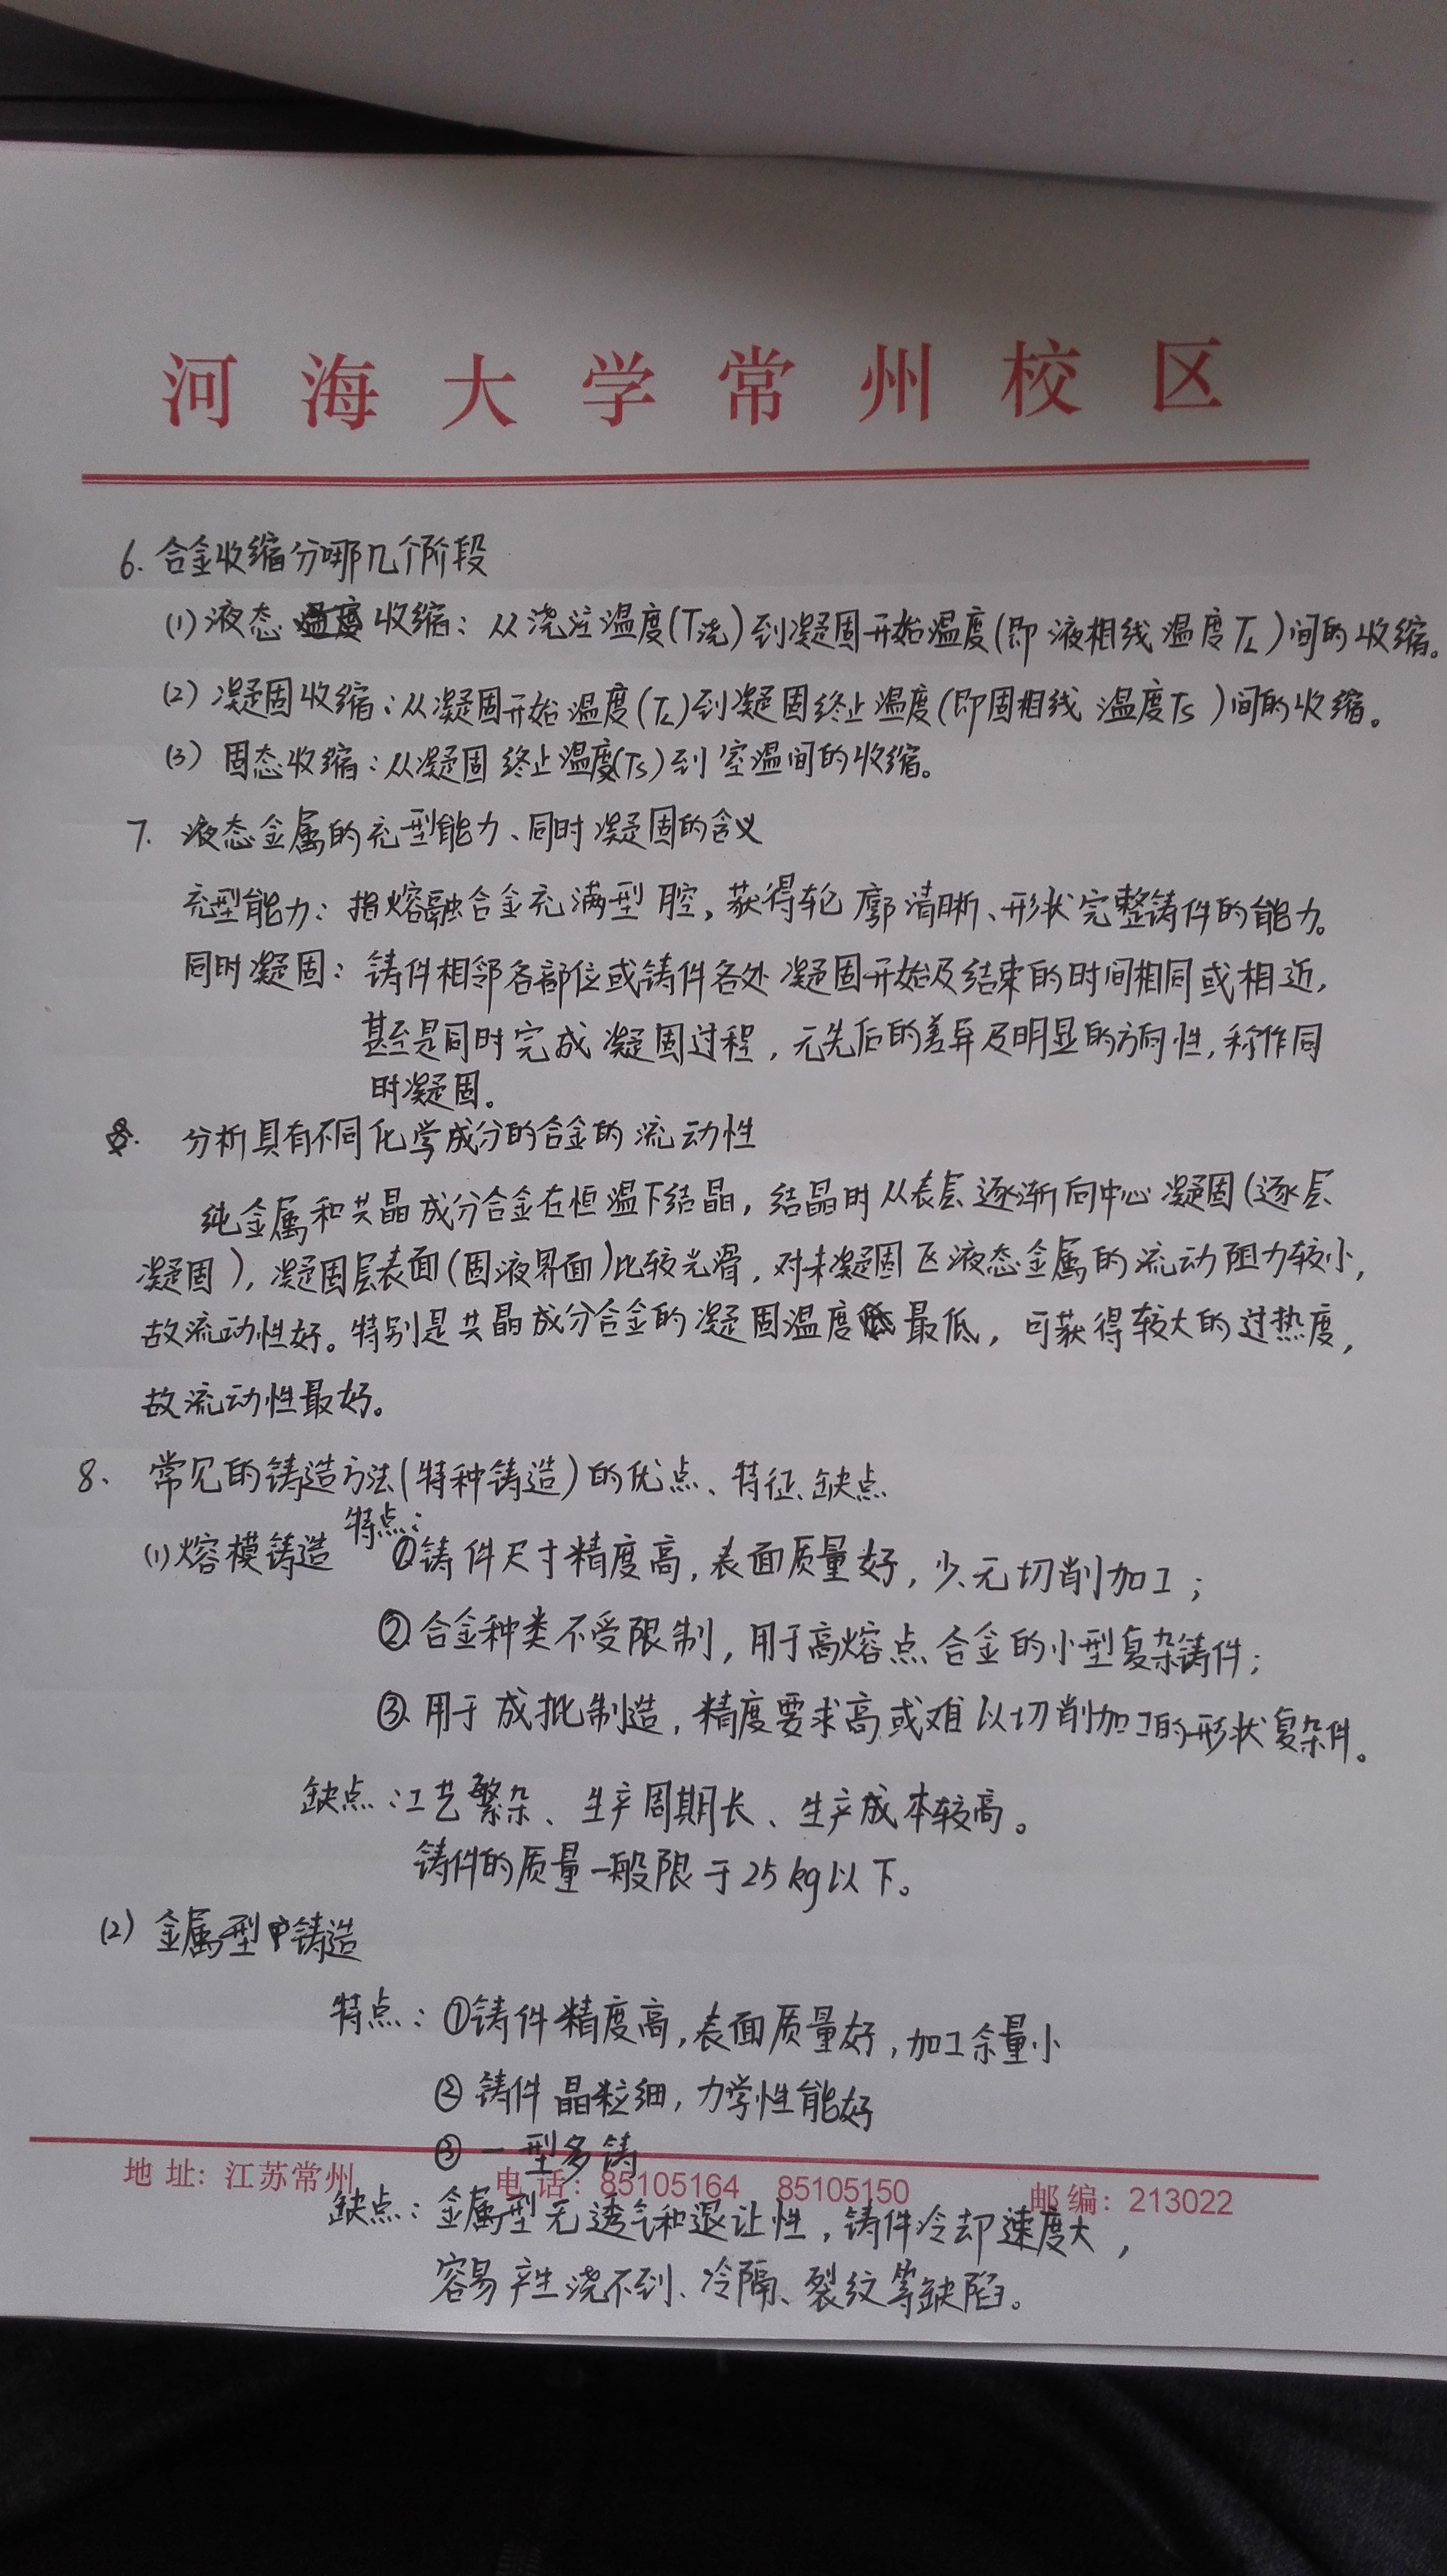 河海大学常州校区
6. 合金收缩分哪几个阶段
(1) 液态收缩：从浇注温度(T浇)到凝固开始温度(即液相线温度TL)间的收缩。
(2) 凝固收缩：从凝固开始温度(TL)到凝固终止温度(即固相线温度Ts)间的收缩。
(3) 固态收缩：从凝固终止温度(Ts)到室温间的收缩。
7. 液态金属的充型能力、同时凝固的含义
充型能力：指熔融合金充满型腔，获得轮廓清晰、形状完整铸件的能力。
同时凝固：铸件相邻各部位或铸件各处凝固开始及结束的时间相同或相近，
甚至是同时完成凝固过程，无先后的差异及明显的方向性，称作同
时凝固。
分析具有不同化学成分的合金的流动性
纯金属和共晶成分合金在恒温下结晶，结晶时从表层逐渐向中心凝固(逐层
凝固)，凝固层表面(固液界面)比较光滑，对未凝固区液态金属的流动阻力较小，
故流动性好。特别是共晶成分合金的凝固温度最低，可获得较大的过热度，
故流动性最好。
8、常见的铸造方法(特种铸造)的优点、特征、缺点
(1) 熔模铸造 特点：①铸件尺寸精度高，表面质量好，少、无切削加工；
②合金种类不受限制，用于高熔点合金的小型复杂铸件；
③用于成批制造，精度要求高或难以切削加工的形状复杂件。
缺点：工艺繁杂、生产周期长、生产成本较高。
铸件的质量一般限于25kg以下。
(2) 金属型铸造
特点：①铸件精度高，表面质量好，加工余量小
②铸件晶粒细，力学性能好
③一型多铸
地址：江苏常州 电话：85105164 85105150 邮编：213022
缺点：金属型无透气和退让性，铸件冷却速度大，
容易产生浇不到、冷隔、裂纹等缺陷。